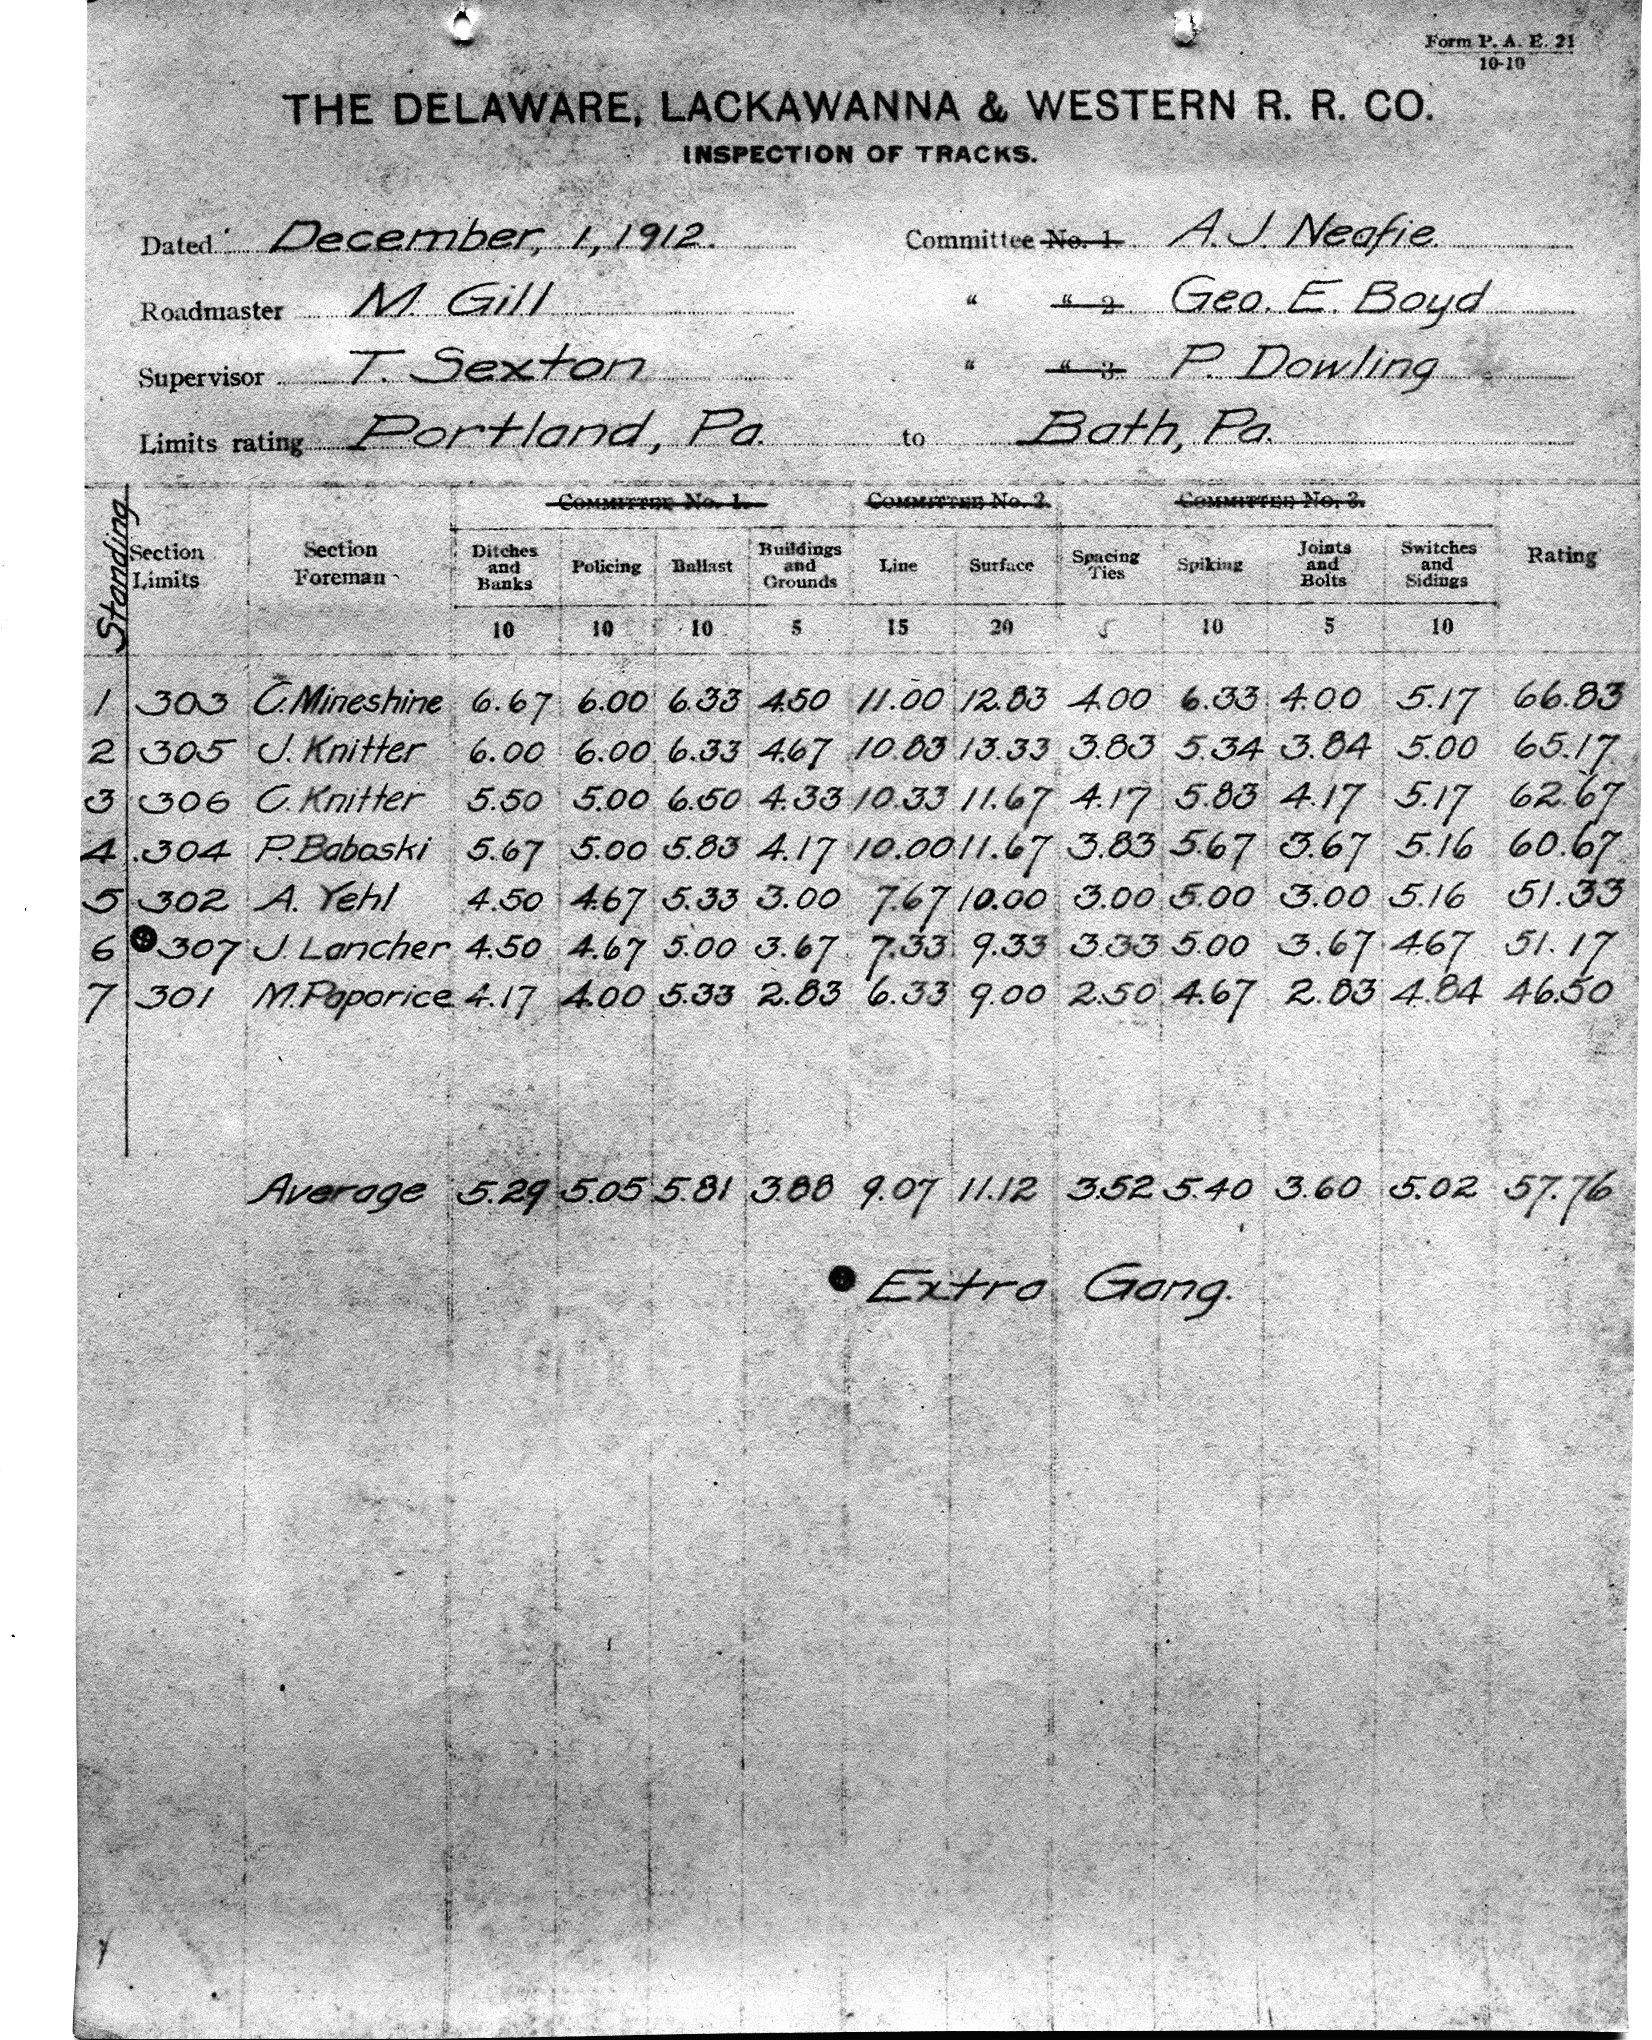 Form P. A. E. 21
10-10
THE DELAWARE, LACKAWANNA & WESTERN R. R. CO.
INSPECTION OF TRACKS.
Dated December, 1, 1912. Committee No. 1. A. J. Neafie
Roadmaster M. Gill " " 2 Geo. E. Boyd
Supervisor T. Sexton " " 3. P. Dowling
Limits rating Portland, Pa. to Bath, Pa.
COMMITTEE No. 1. COMMITTEE No. 2. COMMITTEE No. 3.
Standing Section Limits Section Foreman Ditches and Banks Policing Ballast Buildings and Grounds Line Surface Spacing Ties Spiking Joints and Bolts Switches and Sidings Rating
10 10 10 5 15 20 5 10 5 10
1 303 C. Mineshine 6.67 6.00 6.33 4.50 11.00 12.83 4.00 6.33 4.00 5.17 66.83
2 305 J. Knitter 6.00 6.00 6.33 4.67 10.83 13.33 3.83 5.34 3.84 5.00 65.17
3 306 C. Knitter 5.50 5.00 6.50 4.33 10.33 11.67 4.17 5.83 4.17 5.17 62.67
4 304 P. Babaski 5.67 5.00 5.83 4.17 10.00 11.67 3.83 5.67 3.67 5.16 60.67
5 302 A. Yehl 4.50 4.67 5.33 3.00 7.67 10.00 3.00 5.00 3.00 5.16 51.33
6 307 J. Lancher 4.50 4.67 5.00 3.67 7.33 9.33 3.33 5.00 3.67 4.67 51.17
7 301 M. Paparice 4.17 4.00 5.33 2.83 6.33 9.00 2.50 4.67 2.83 4.84 46.50
Average 5.29 5.05 5.81 3.88 9.07 11.12 3.52 5.40 3.60 5.02 57.76
Extra Gang.